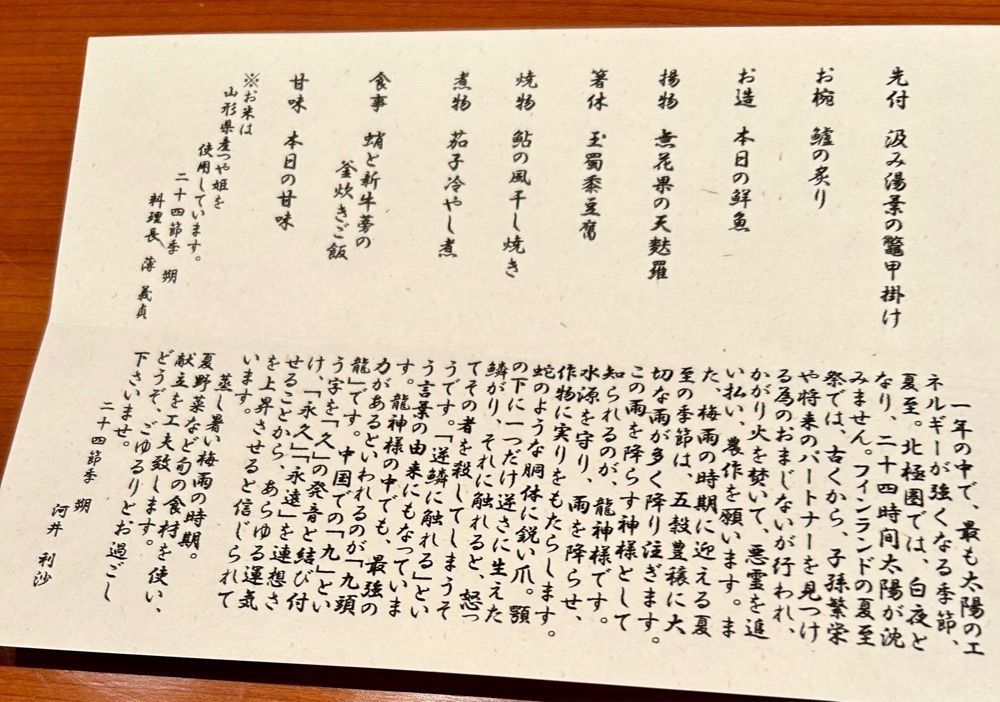 先付 汲み湯葉の鼈甲掛け
お椀 鱸の炙り
お造 本日の鮮魚
揚物 無花果の天麩羅
箸休 玉蜀黍豆腐
焼物 鮎の風干し焼き
煮物 茄子冷やし煮
食事 蛸と新牛蒡の
釜炊きご飯
甘味 本日の甘味
※お米は
山形県産つや姫を
使用しています。
二十四節季 朔
料理長 薄 義貞
一年の中で、最も太陽のエ
ネルギーが強くなる季節、
夏至。北極圏では、白夜と
なり、二十四時間太陽が沈
みません。フィンランドの夏至
祭では、古くから、子孫繁栄
や将来のパートナーを見つけ
る為のおまじないが行われ、
かがり火を焚いて、悪霊を追
い払い、農作を願います。ま
た、梅雨の時期に迎える夏
至の季節は、五穀豊穣に大
切な雨が多く降り注ぎます。
この雨を降らす神様として
知られるのが、龍神様です。
水源を守り、雨を降らせ、
作物に実りをもたらします。
蛇のような胴体に鋭い爪。顎
の下に一つだけ逆さに生えた
鱗があり、それに触れると、怒っ
てその者を殺してしまうそ
うです。「逆鱗に触れる」とい
う言葉の由来にもなっていま
す。龍神様の中でも、最強の
力があるといわれるのが「九頭
龍」です。中国での「九」とい
う字を「久」の発音と結び付
け、「永久」「永遠」を連想さ
せることから、あらゆる運気
を上昇させると信じられて
います。
蒸し暑い梅雨の時期。
夏野菜など旬の食材を使い、
献立を工夫致します。
どうぞ、ごゆるりとお過ごし
下さいませ。
二十四節季 朔
河井 利沙